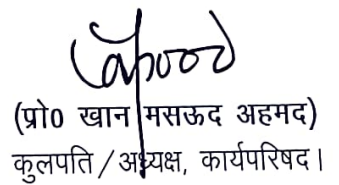 (प्रो0 खान मसऊद अहमद)
कुलपति / अध्यक्ष, कार्यपरिषद।